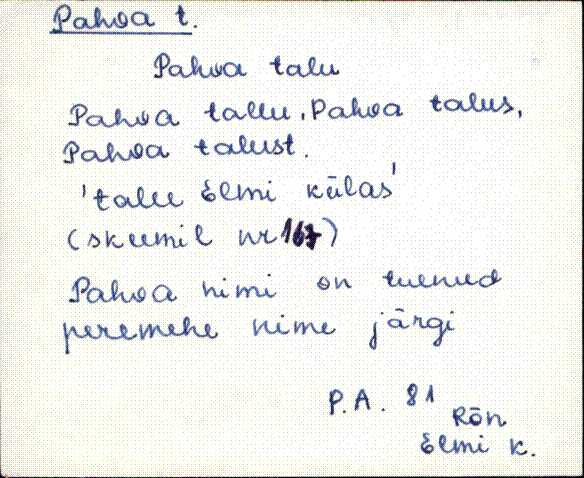 Pahoa t.
Pahoa talu
Pahoa tallu, Pahoa talus,
Pahoa talust.
'talu Elmi külas'
(skeemil nr 167)
Pahoa nimi on tulnud
peremehe nime järgi
P.A. 81
Rõn
Elmi k.